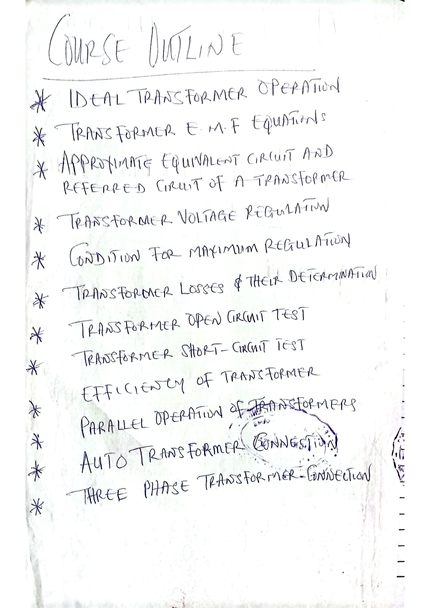 COURSE OUTLINE
* IDEAL TRANSFORMER OPERATION
* TRANSFORMER E.M.F EQUATIONS
* APPROXIMATE EQUIVALENT CIRCUIT AND
REFERRED CIRUIT OF A TRANSFORMER
* TRANSFORMER VOLTAGE REGULATION
* CONDITION FOR MAXIMUM REGULATION
* TRANSFORMER LOSSES & THEIR DETERMINATION
* TRANSFORMER OPEN CIRCUIT TEST
* TRANSFORMER SHORT-CIRCUIT TEST
EFFICIENCY OF TRANSFORMER
* PARALLEL OPERATION OF TRANSFORMERS
* AUTO TRANSFORMER CONNESTION
* THREE PHASE TRANSFORMER-CONNECTION